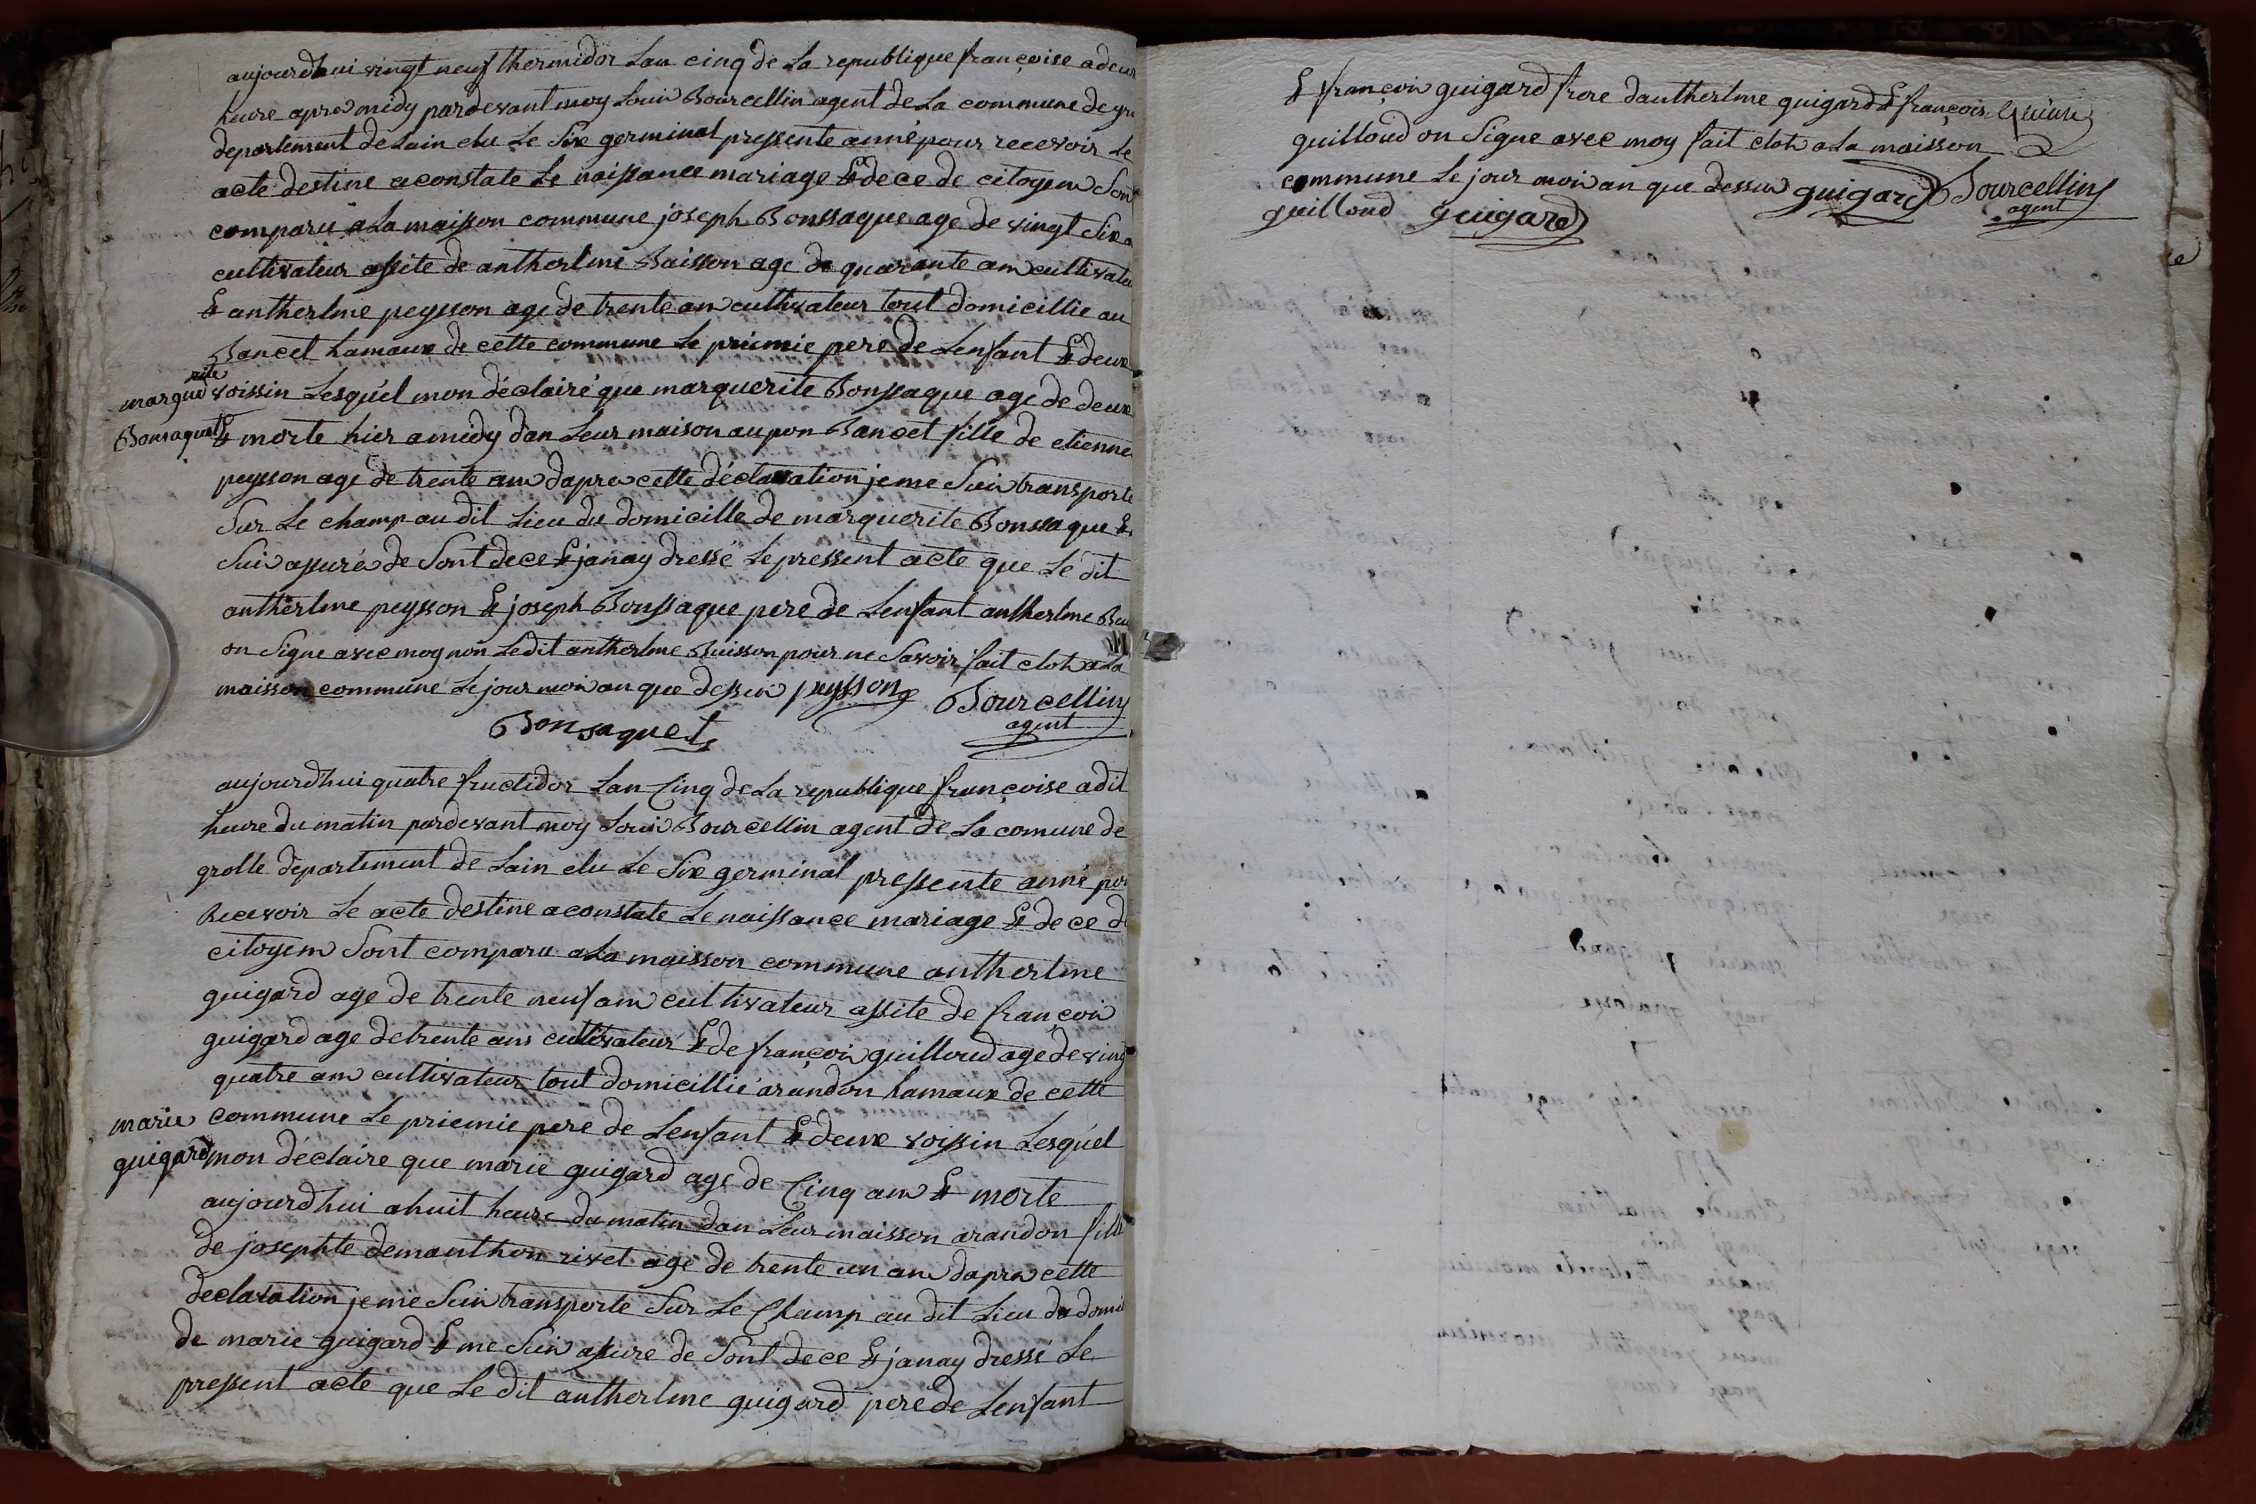 aujourdhui vingt neuf thermidor Lan cinq de La republique françoise a deux
heure apre midy pardevant moy Louis Bourcellin agent de La commune de gro
departement de Lain elu Le Six germinal pressente anné pour recevoir Le
acte destine a constate Le naissance mariage & dece de citoyem Sont
comparu a La maison commune joseph Bonssaque age de vingt Six a
cultivateur assite de antherlme Buisson age de quarante am cultivateu
& antherlme peysson age de trente am cultivateur tout domicillie au
Bancet hamaux de cette commune Le priemie pere de Lenfant & deux
voissin Lesquel mon déclairé que marguerite Bonssaque age de deux
marguerite
Bonsaquet
& morte hier a midy dan Leur maison au pon Bancet fille de etienne
peysson age de trente am dapre cette déclaration je me Suis transporte
Sur Le champ au dit Lieu du domicille de marguerite Bonssaque &
Suis assuré de Sont dece & janay dressé Le pressent acte que Lé dit
antherlme peysson & joseph Bonssaque pere de Lenfant antherlme
on Signe avec moy non Ledit antherlme Buisson pour ne Savoir fait clot a La
maisson commune Le jour mois an que dessu peysson Bourcellin
Bonsaquet agent
aujourdhui quatre fructidor Lan Cinq de La republique françoise a dit
heure du matin pardevant moy Loui Bourcellin agent de La comune de
grolle departement de Lain elu Le Six germinal pressente anné pou
Recevoir Le acte destine a constate Le naissance mariage & de ce de
citoyem Sont comparu a La maisson commune antherlme
guigard age de trente neuf am cultivateur assite de françoi
guigard age de trente ans cultivateur & de françoi guilloud age de ving
quatre am cultivateur tout domicillié arandon hamaux de cette
commune Le priemie pere de Lenfant & deux voissin Lesquél
marie
guigard
mon déclaire que marie guigard age de Cinq am & morte
aujourdhui a huit heure du matin dan Leur maisson arandon fille
de josephte demanthon rivet age de trente un am dapre cette
declaration je me Suis transporte Sur Le Champ au dit Lieu du domi
de marie guigard & me Suis assure de Sont dece & janay dressé Le
pressent acte que Le dit antherlme guigard pere de Lenfant
& françoi guigard frere dantherlme guigard & françoi
guilloud on Signe avec moy fait clot a La maisson
commune Le jour mois an que dessu guigard Bourcellin
guilloud guigard agent